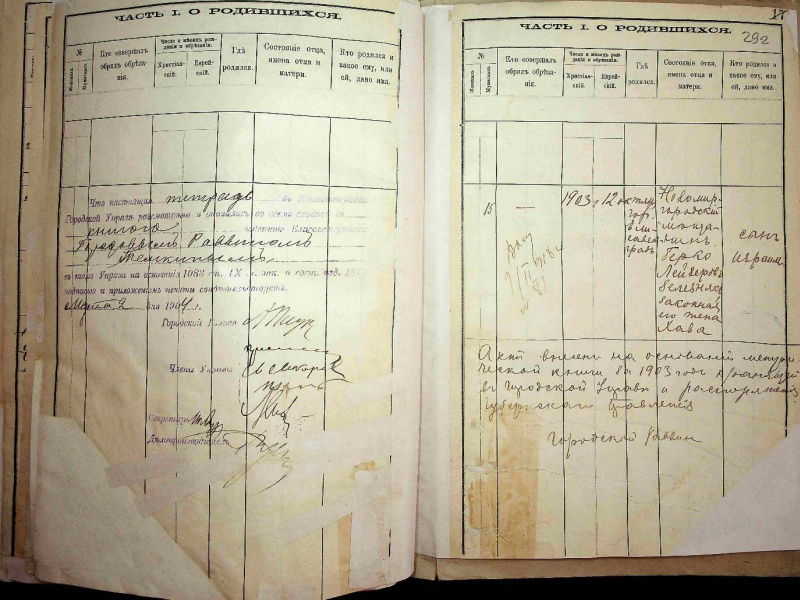 ЧАСТЬ I. О РОДИВШИХСЯ.
№
Женска.
Мужеска.
Кто совершалъ обрядъ обрѣзанія.
Число и мѣсяцъ рожденія и обрѣзанія.
Христіанскій.
Еврейскій.
Гдѣ родился.
Состояніе отца, имена отца и матери.
Кто родился и какое ему, или ей, дано имя.
Что настоящая тетрадь въ Елисаветградской
Городской Управѣ разсмотрѣна и оказалась во всемъ сходной съ
книгою
Городовымъ Раввиномъ
Темкинымъ
въ томъ Управа на основаніи 1083 ст. IX т. зак. о сост. изд. 187
подписью и приложеніемъ печати свидѣтельствуетъ.
Марта 2 дня 1904 г.
Городской Голова
Члены Управы
Секретарь
Дѣлопроизводитель
17
292
ЧАСТЬ I. О РОДИВШИХСЯ.
№
Женска.
Мужеска.
Кто совершалъ обрядъ обрѣзанія.
Число и мѣсяцъ рожденія и обрѣзанія.
Христіанскій.
Еврейскій.
Гдѣ родился.
Состояніе отца, имена отца и матери.
Кто родился и какое ему, или ей, дано имя.
15
—
1903 г 12 октяб
гор.
елисавет
градъ
Новомир-
городскій
мѣща-
нинъ
Герко
Лейзеровъ
законная
его жена
Хава
сынъ
Израиль
Актъ внесенъ на основаніи метри
ческой книги за 1903 годъ
въ городской Управѣ и распоряженія
Губернскаго Правленія
Городской Раввинъ